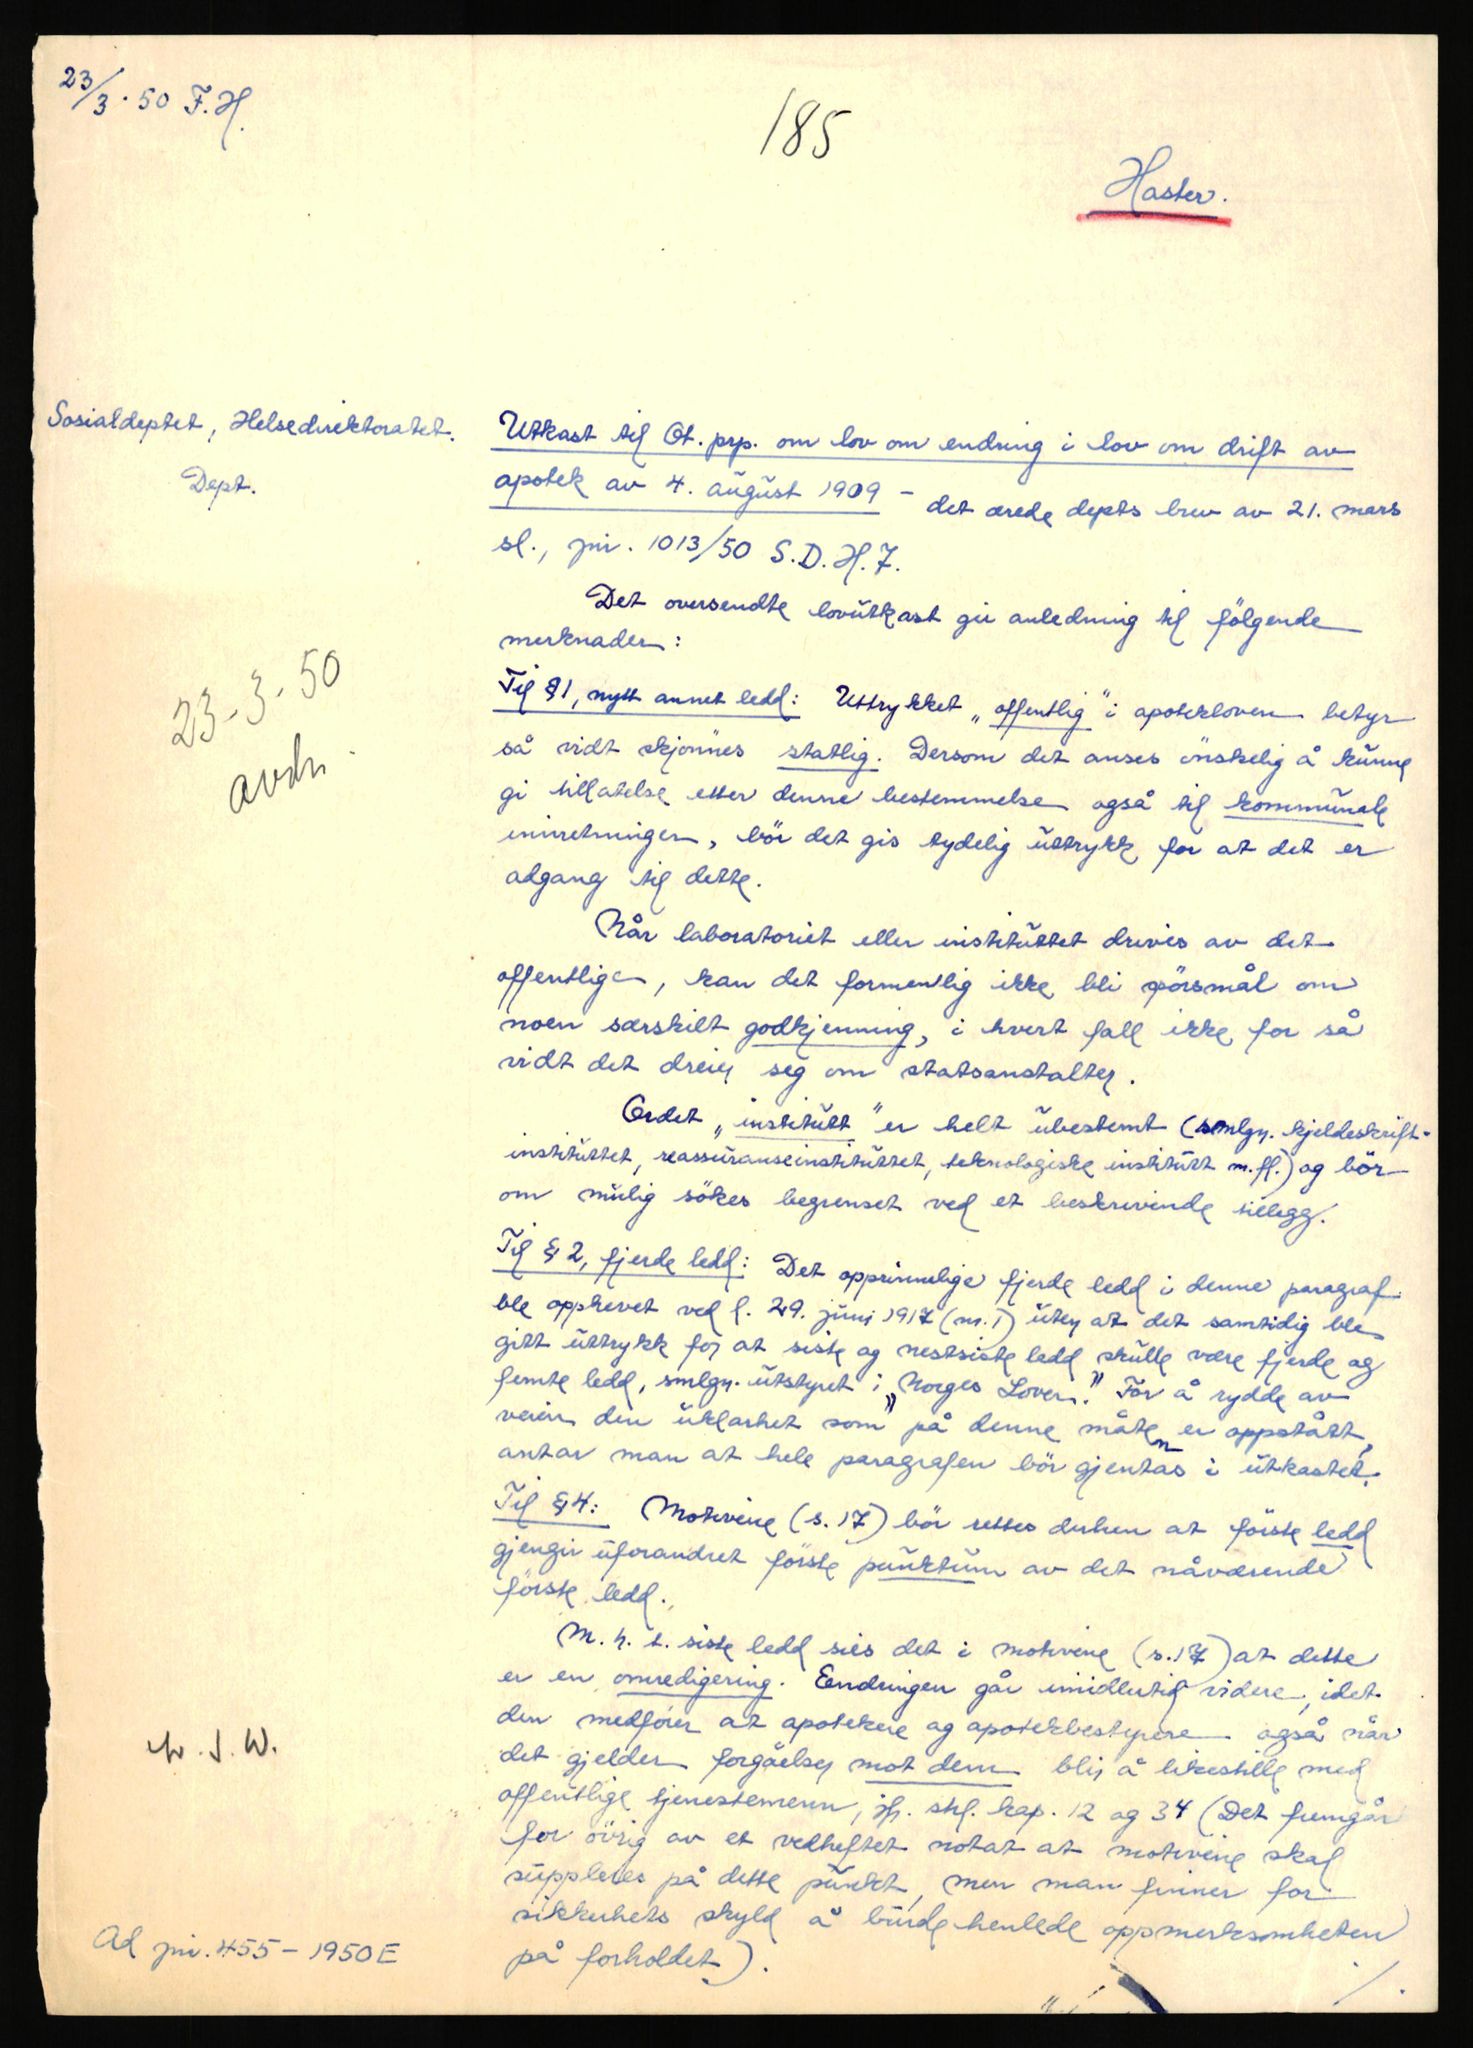 23/3.50 F.H.
185
Haster.
Sosialdeptet, Helsedirektoratet.
Dept.
Utkast til Ot. prp. om lov om endring i lov om drift av
apotek av 4. august 1909 - det ærede depts brev av 21. mars
sl., jnr. 1013/50 S.D.H.7.
Det oversendte lovutkast gir anledning til følgende
merknader:
23-3-50
avdn
Til § 1, nytt annet ledd: Uttrykket „offentlig" i apotekloven betyr
så vidt skjønnes statlig. Dersom det anses ønskelig å kunne
gi tillatelse etter denne bestemmelse også til kommunale
innretninger, bør det gis tydelig uttrykk for at det er
adgang til dette.
Når laboratoriet eller instituttet drives av det
offentlige, kan det formentlig ikke bli spørsmål om
noen særskilt godkjenning, i hvert fall ikke for så
vidt det dreier seg om statsanstalter.
Ordet „institutt" er helt ubestemt (smlgn. kjeldeskrift-
instituttet, reassuranseinstituttet, teknologiske institutt m.fl.) og bør
om mulig søkes begrenset ved et beskrivende tillegg.
Til § 2, fjerde ledd: Det opprinnelige fjerde ledd i denne paragraf
ble opphevet ved l. 29. juni 1917 (nr. 1) uten at det samtidig ble
gitt uttrykk for at siste og nestsiste ledd skulle være fjerde og
femte ledd, smlgn. utstyret i „Norges Lover." For å rydde av
veien den uklarhet som på denne måten er oppstått,
antar man at hele paragrafen bør gjentas i utkastet.
Til § 4: Motivene (s. 17) bør rettes derhen at første ledd
gjengir uforandret første punktum av det nåværende
første ledd.
M. h. t. siste ledd sies det i motivene (s. 17) at dette
er en omredigering. Endringen går imidlertid videre, idet
den medfører at apotekere og apotekbestyrere også når
det gjelder forgåelser mot dem blir å likestille med
offentlige tjenestemenn, jfr. strl. kap. 12 og 34 (Det fremgår
for øvrig av et vedheftet notat at motivene skal
suppleres på dette punkt, men man finner for
sikkerhets skyld å burde henlede oppmerksomheten
på forholdet).
./.
Ad jnr. 455-1950E